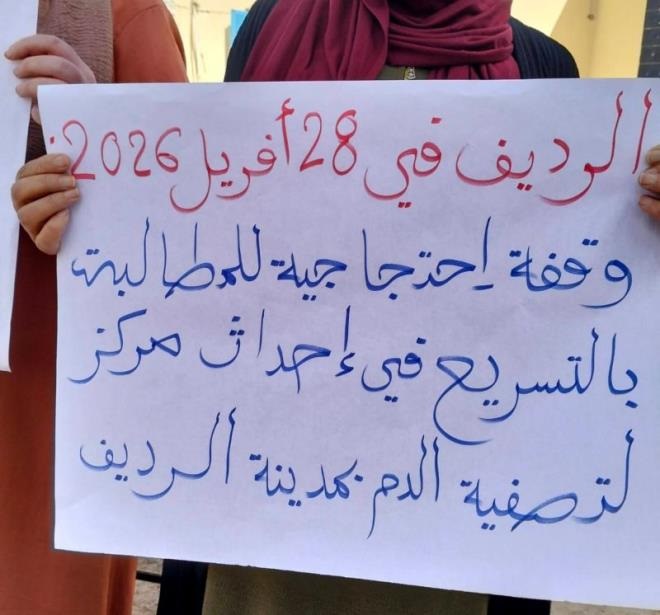 الرديف في 28 أفريل 2026:
وقفة إحتجاجية للمطالبة
بالتسريع في إحداث مركز
لتصفية الدم بمدينة الرديف